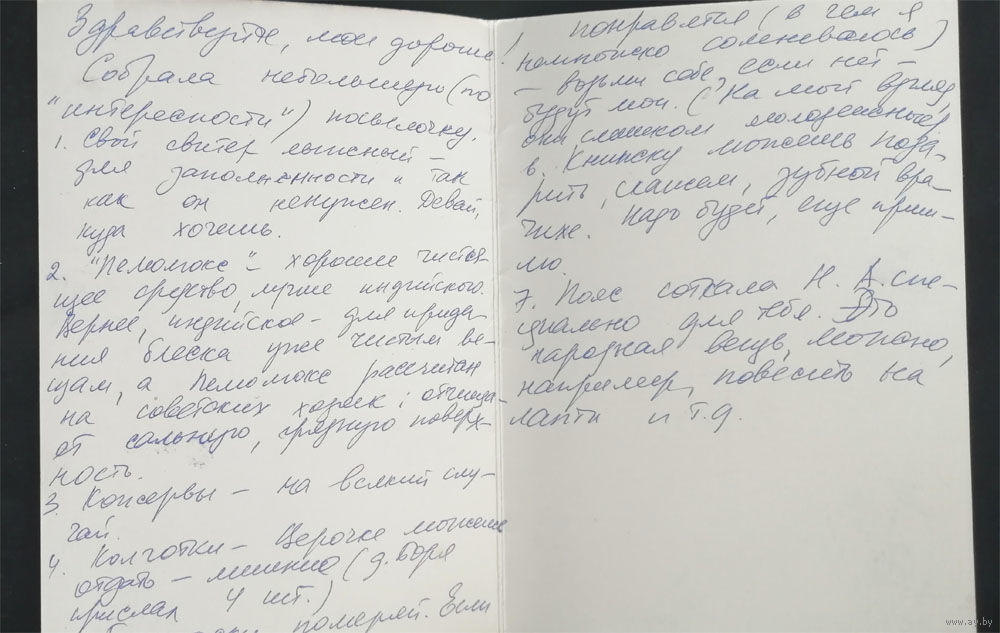 Здравствуйте, мои дорогие!
Собрала небольшую (по
"интересности") посылочку.
1. Свой свитер лыжный –
для заполненности и так
как он ненужен. Девай,
куда хочешь.
2. "Пемоксоль" – хорошее чистя-
щее средство, лучше индийского.
Вернее, индийское – для прида-
ния блеска уже чистым ве-
щам, а Пемоксоль рассчитан
на советских хозяек: отчища-
ет сальную, грязную поверх-
ность.
3. Консервы – на всякий слу-
чай.
4. Колготки – Верочке можешь
отдать – лишние (д. Боря
прислал 4 шт.)
померяй. Если
понравятся (в чем я
сомневаюсь)
– возьми себе, если нет –
будут мои. (На мой взгляд,
они слишком молодежные)
6. Книжку можешь пода-
рить, скажем, зубной вра-
чихе. Надо будет, еще приш-
лю.
7. Пояс соткала Н. А. спе-
циально для тебя. Это
народная вещь, можно,
например, повесить на
лапти и т.д.
www.ay.by